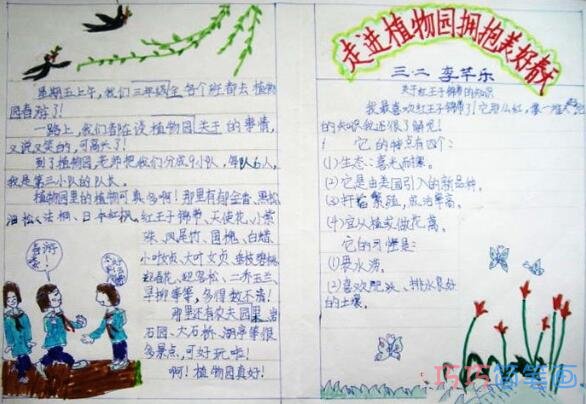 星期五上午,我们三年级全各个班都去植物
园春游了!
一路上,我们都在谈植物园关于的事情,
又说又笑的,可高兴了!
到了植物园,老师把我们分成9小队,每队6人,
我是第三小队的队长。
植物园里的植物可真多啊!那里有郁金香、黑松、
油松、法桐、日本红枫、红王子锦带、天使花、小蒙
珠、凤尾竹、国槐、白蜡、
小叶女贞、大叶女贞、垂枝碧桃、
迎春花、迎客松、二乔玉兰、
早柳等等,多得数不清!
那里还有农夫园果、岩
石园、大石桥、湖亭等很
多景点,可好玩啦!
啊!植物园真好!
走进植物园拥抱美好春天
三.二 李芊乐
关于红王子锦带的知识
我最喜欢红王子锦带了!它那么红,像一堆火
的知识我还很了解完!
它的特点有四个:
(1)生态:喜光耐寒。
(2)它是由美国引入的新品种。
(3)扦插繁殖,成活率高。
(4)宜丛植或做花篱。
它的习惯是:
(1)畏水涝。
(2)喜欢肥沃、排水良好
的土壤。
巧巧简笔画